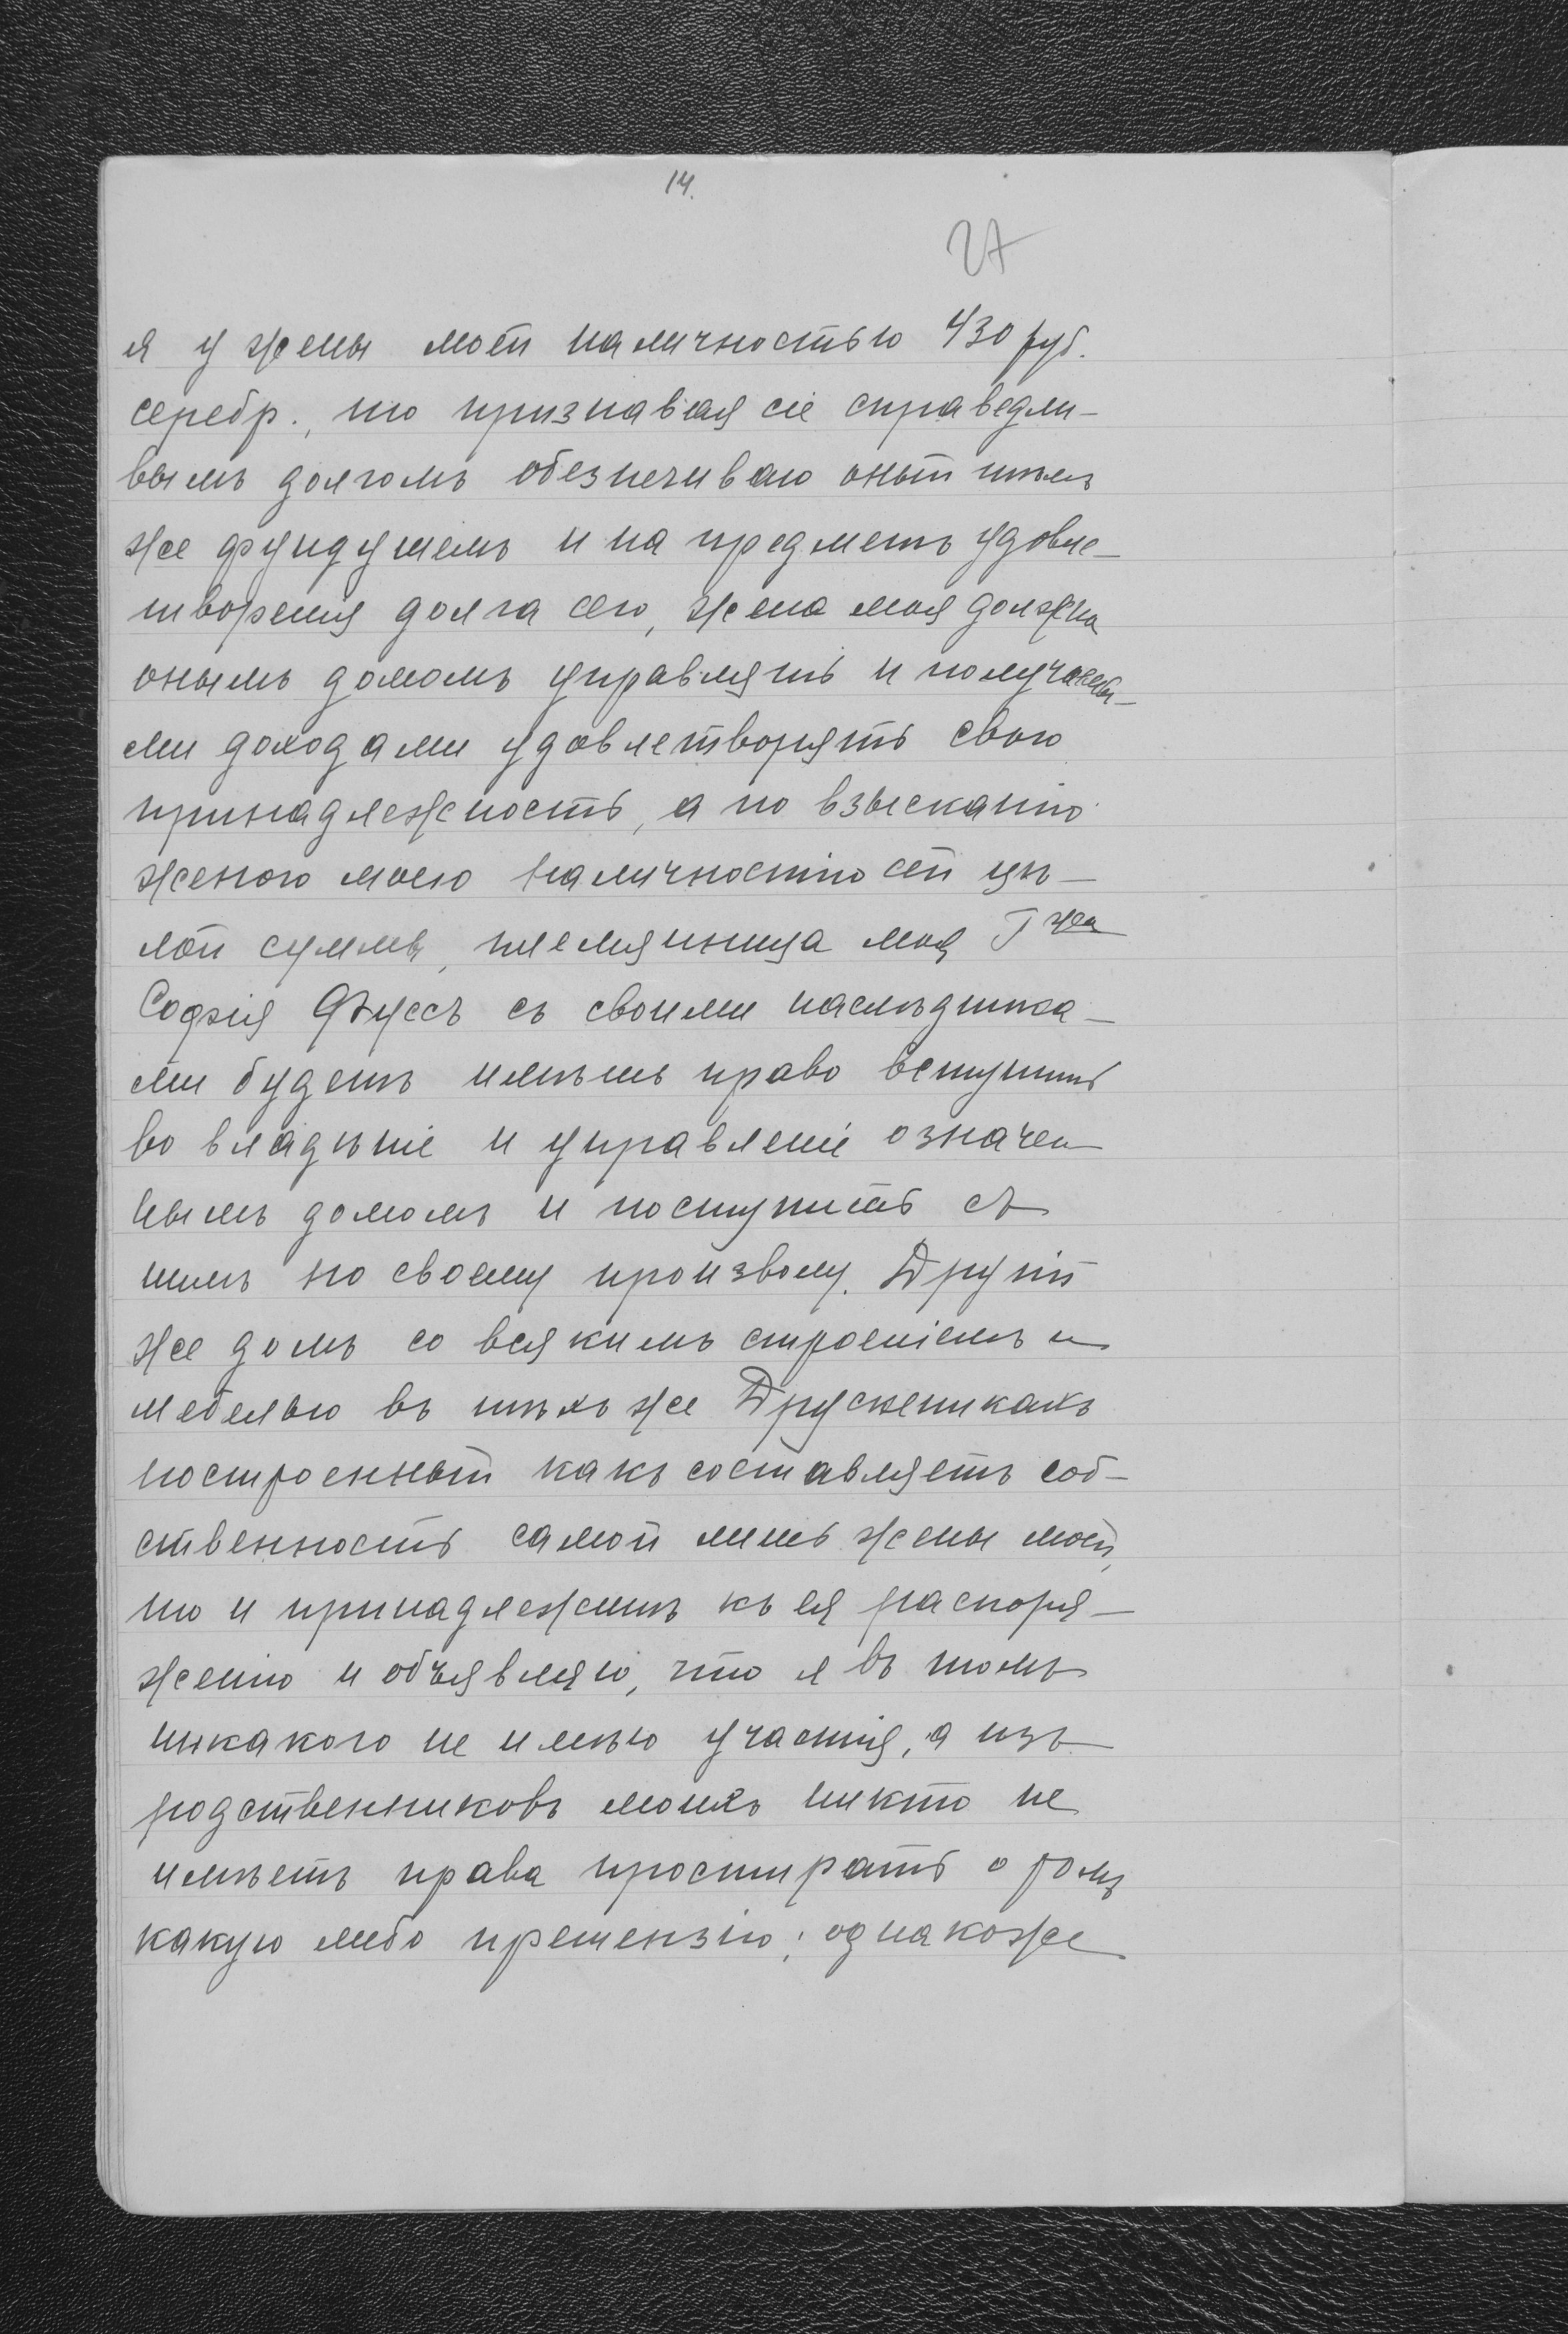 14.
27
я у жены моей наличностью 430 руб.
серебр., то признавая сіе справедли-
вымъ долгомъ обезпечиваю оный тѣмъ
же фундушемъ и на предметъ удовле-
творенія долга сего, жена моя должна
онымъ домомъ управлять и получаемы-
ми доходами удовлетворять свою
принадлежность, а по взысканію
женою моею наличностію сей цѣ-
лой суммы, племянница моя Гжа
Софія Фуссъ съ своими наслѣдника-
ми будетъ имѣть право вступить
во владѣніе и управленіе означен
нымъ домомъ и поступить съ
нимъ по своему произволу. Другій
же домъ со всякимъ строеніемъ и
мебелью въ тѣхъ же Друскеникахъ
построенный какъ составляетъ соб-
ственность самой лишь жены моей,
то и принадлежитъ къ ея распоря-
женію и объявляю, что я въ томъ
никакого не имѣю участія, а изъ
родственниковъ моихъ никто не
имѣетъ права простирать о томъ
какую либо претензію; однакоже